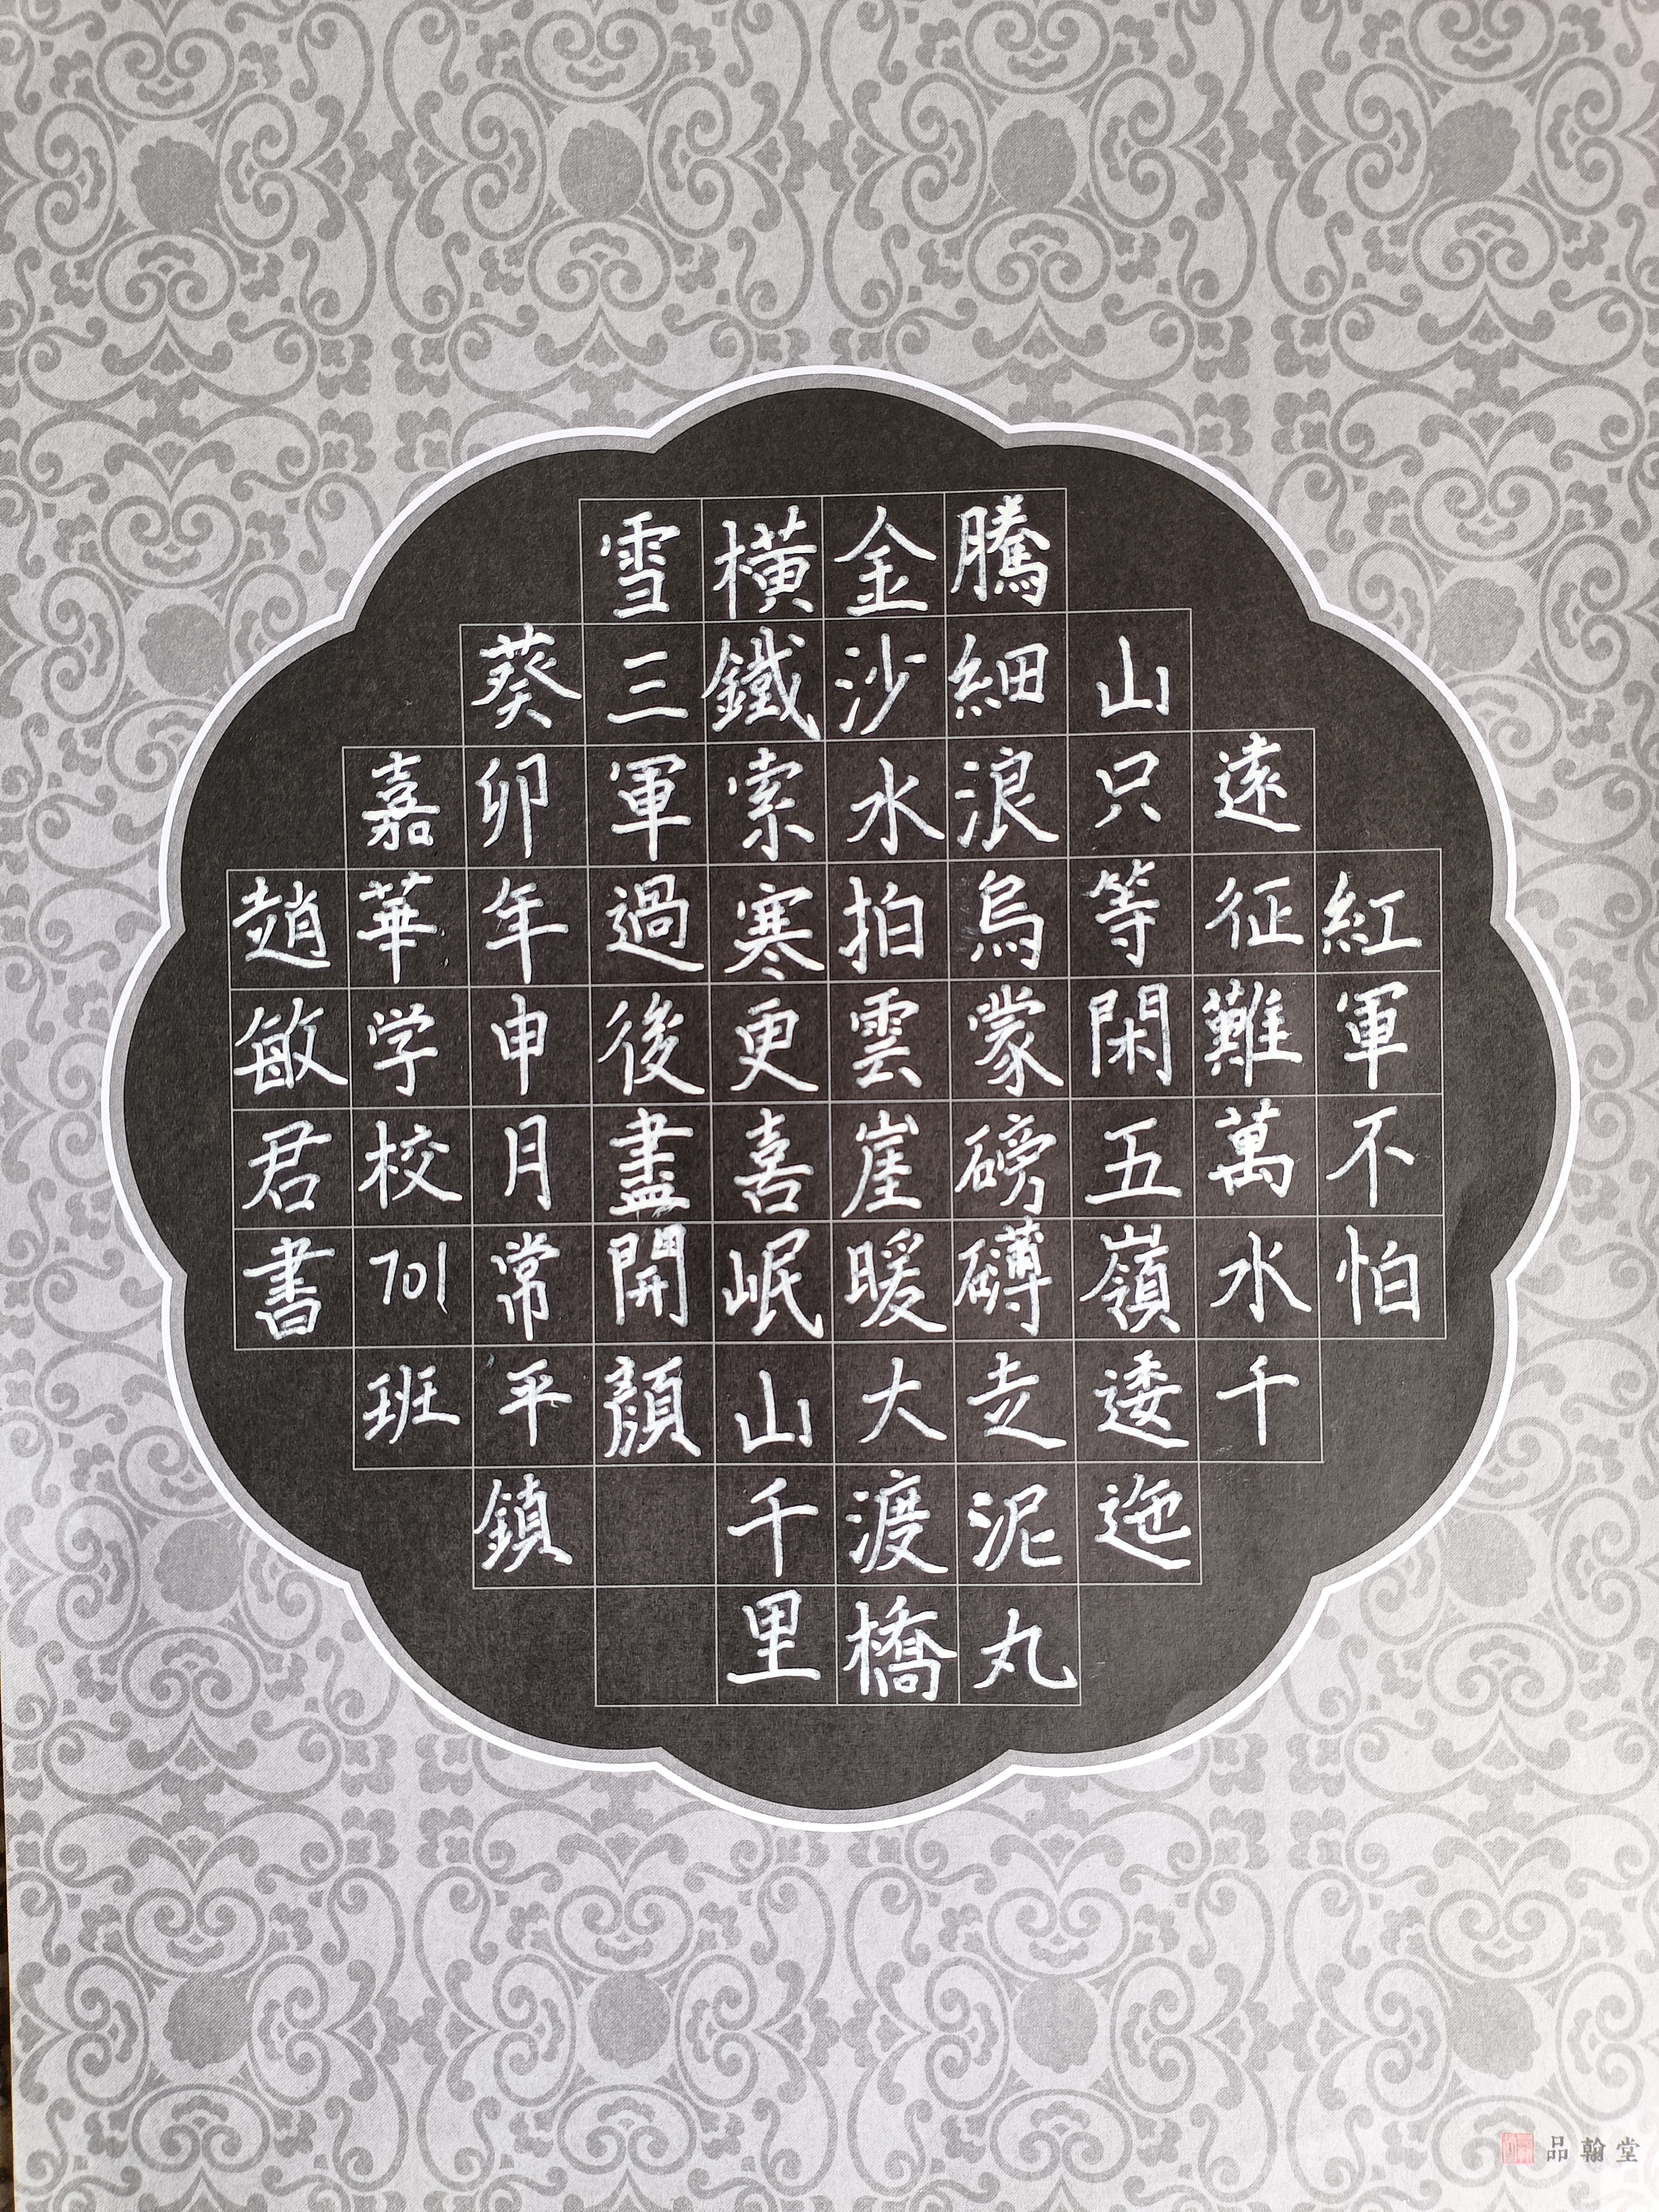 紅軍不怕
遠征難萬水千
山只等閑五嶺逶迤
騰細浪烏蒙磅礴走泥丸
金沙水拍雲崖暖大渡橋
橫鐵索寒更喜岷山千里
雪三軍過後盡開顏
葵卯年申月常平鎮
嘉華学校701班
趙敏君書
品翰堂